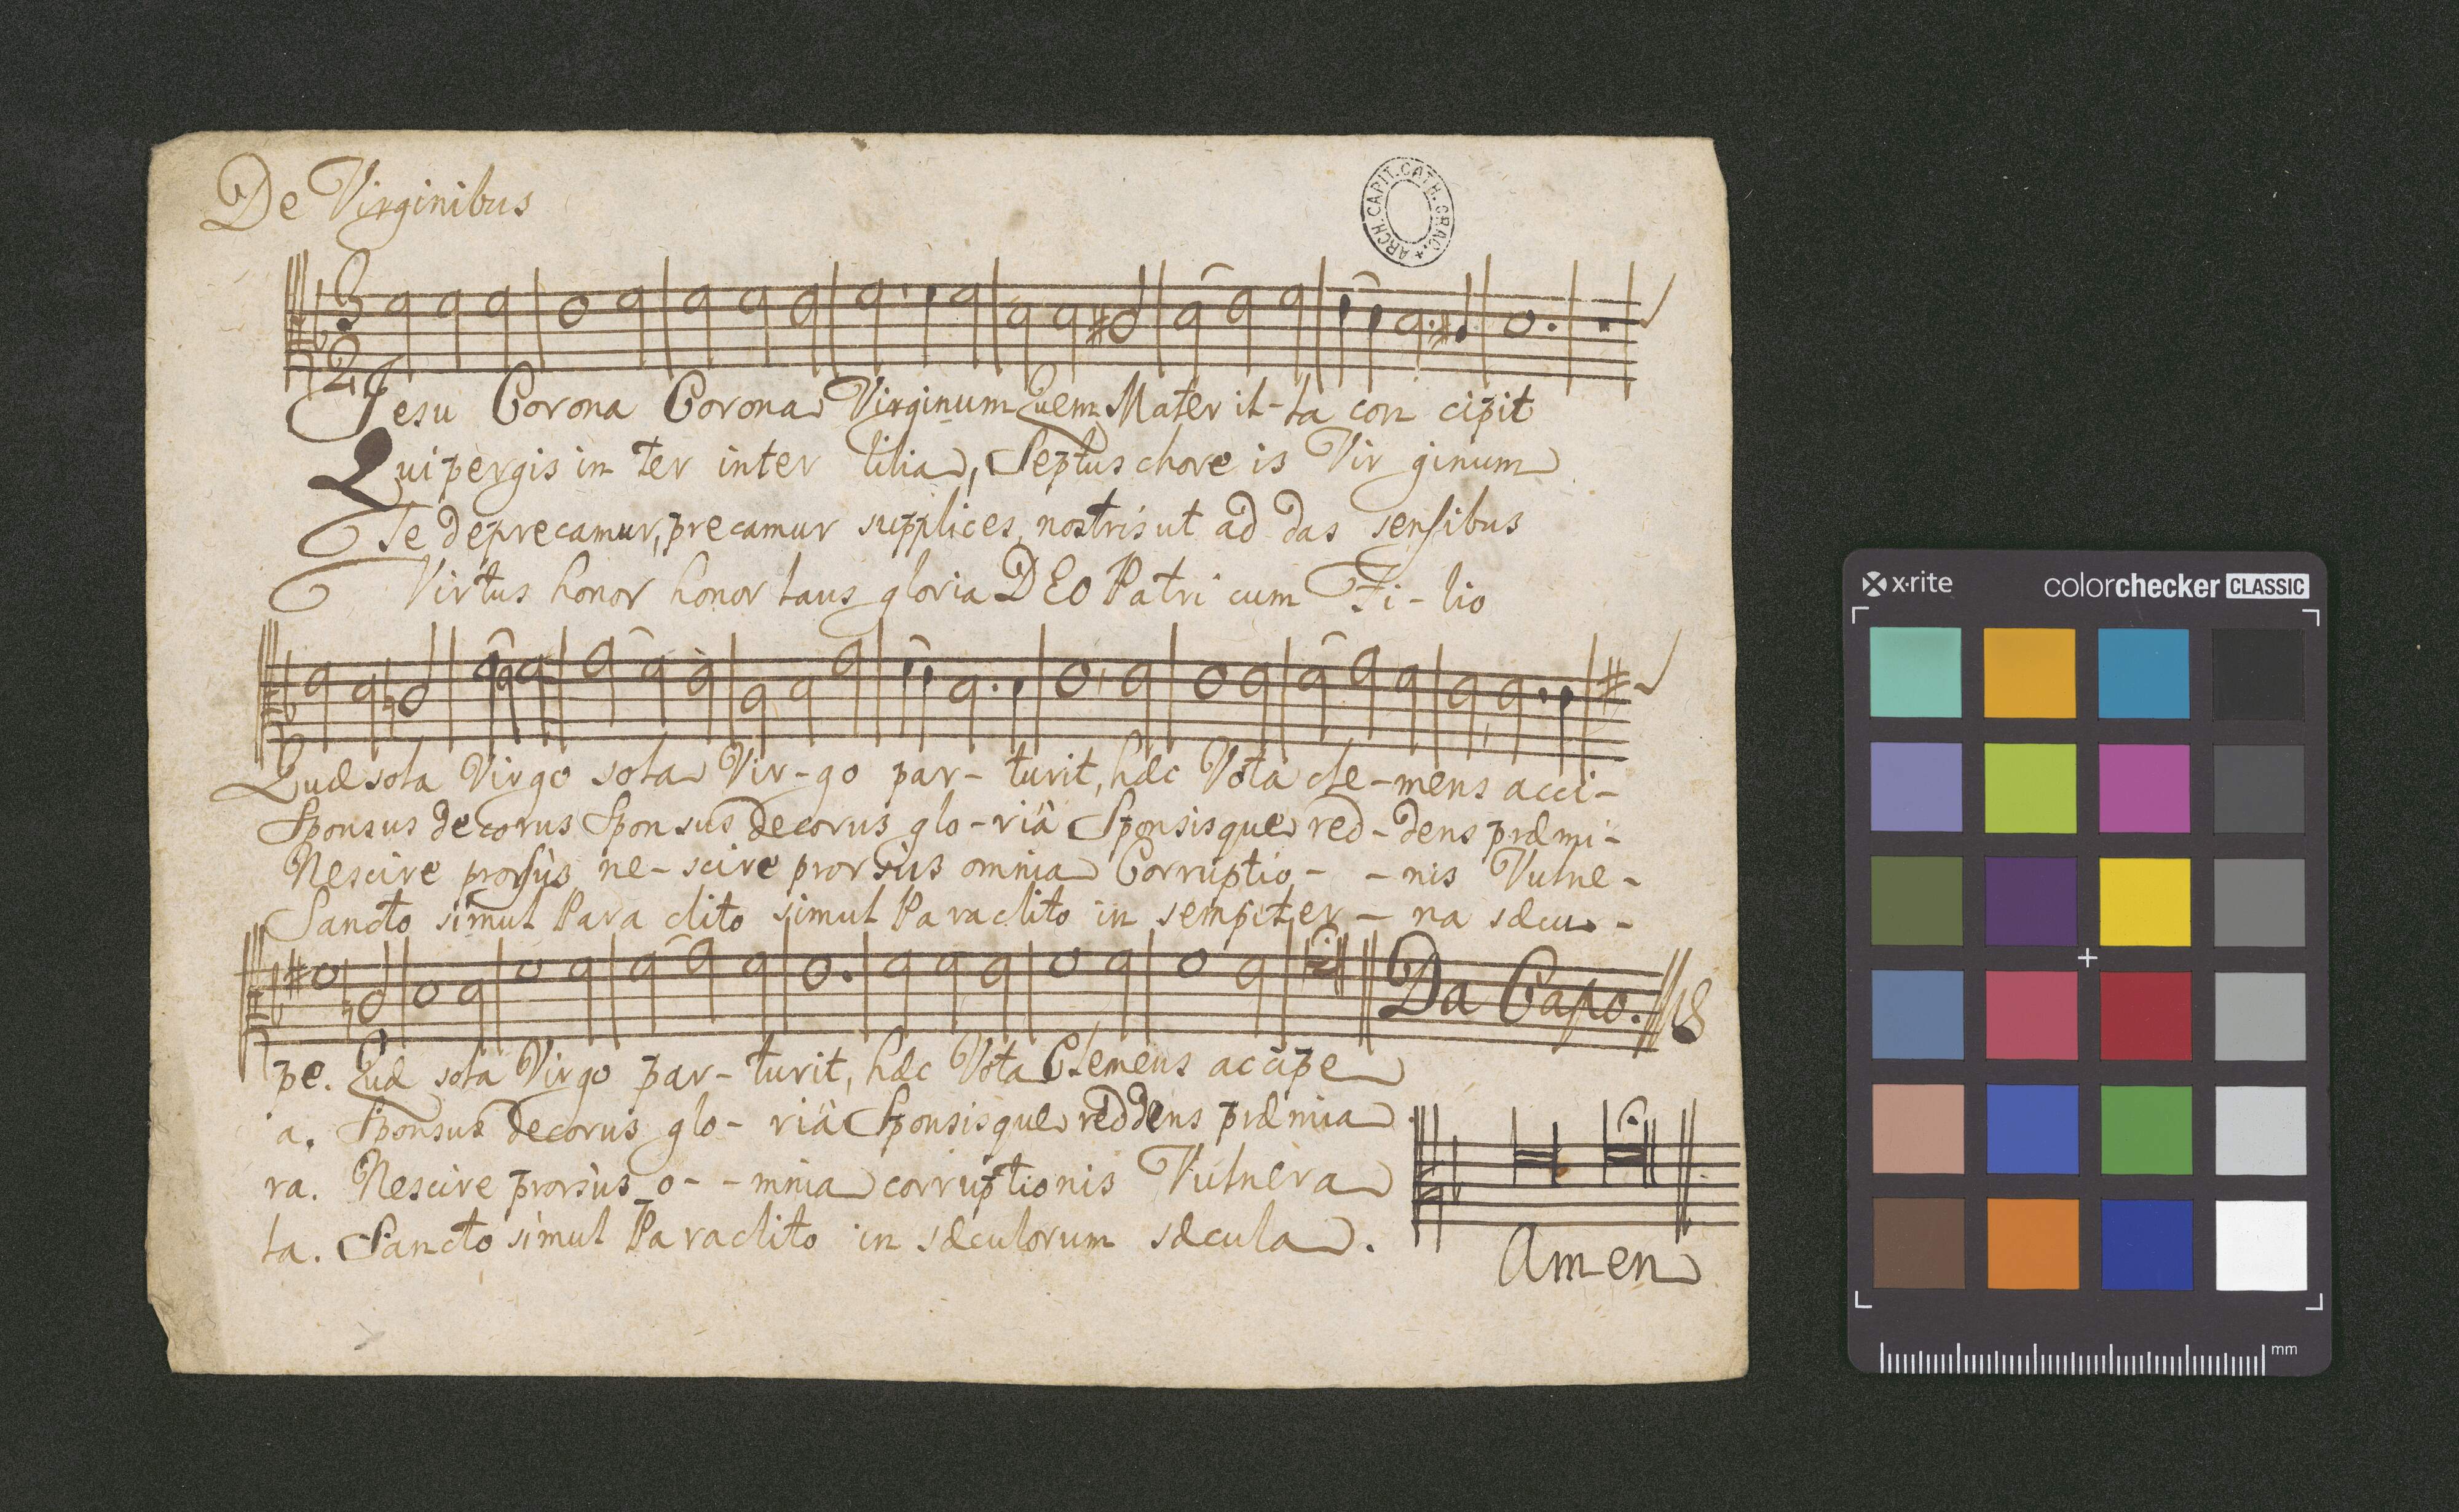 De Virginibus
ARCH. CAPIT. CATH. GRAC.
3
2
Jesu Corona Corona Virginum Quem Mater il-la con cipit
Qui pergis in ter inter lilia, Septus chore is Vir ginum
Te deprecamur, precamur supplices, nostris ut ad das sensibus
Virtus honor honor laus gloria DEo Patri cum Fi-lio
Quæ sola Virgo sola Vir-go par-turit, hæc Vota cle-mens acci-
Sponsus decorus Sponsus decorus glo-riâ Sponsisque red-dens præmi-
Nescire prorsùs ne-scire prorsùs omnia Corruptio- -nis Vulne-
Sancto simul Para clito simul Pa raclito in sempiter-na sæcu-
Da Capo.
pe. Quæ sola Virgo par-turit, hæc Vota Clemens accipe
a. Sponsus decorus glo-riâ Sponsisque reddens præmia
ra. Nescire prorsùs o- -mnia corruptionis Vulnera
la. Sancto simul Pa raclito in sæculorum sæcula.
Amen
x-rite
colorchecker CLASSIC
mm